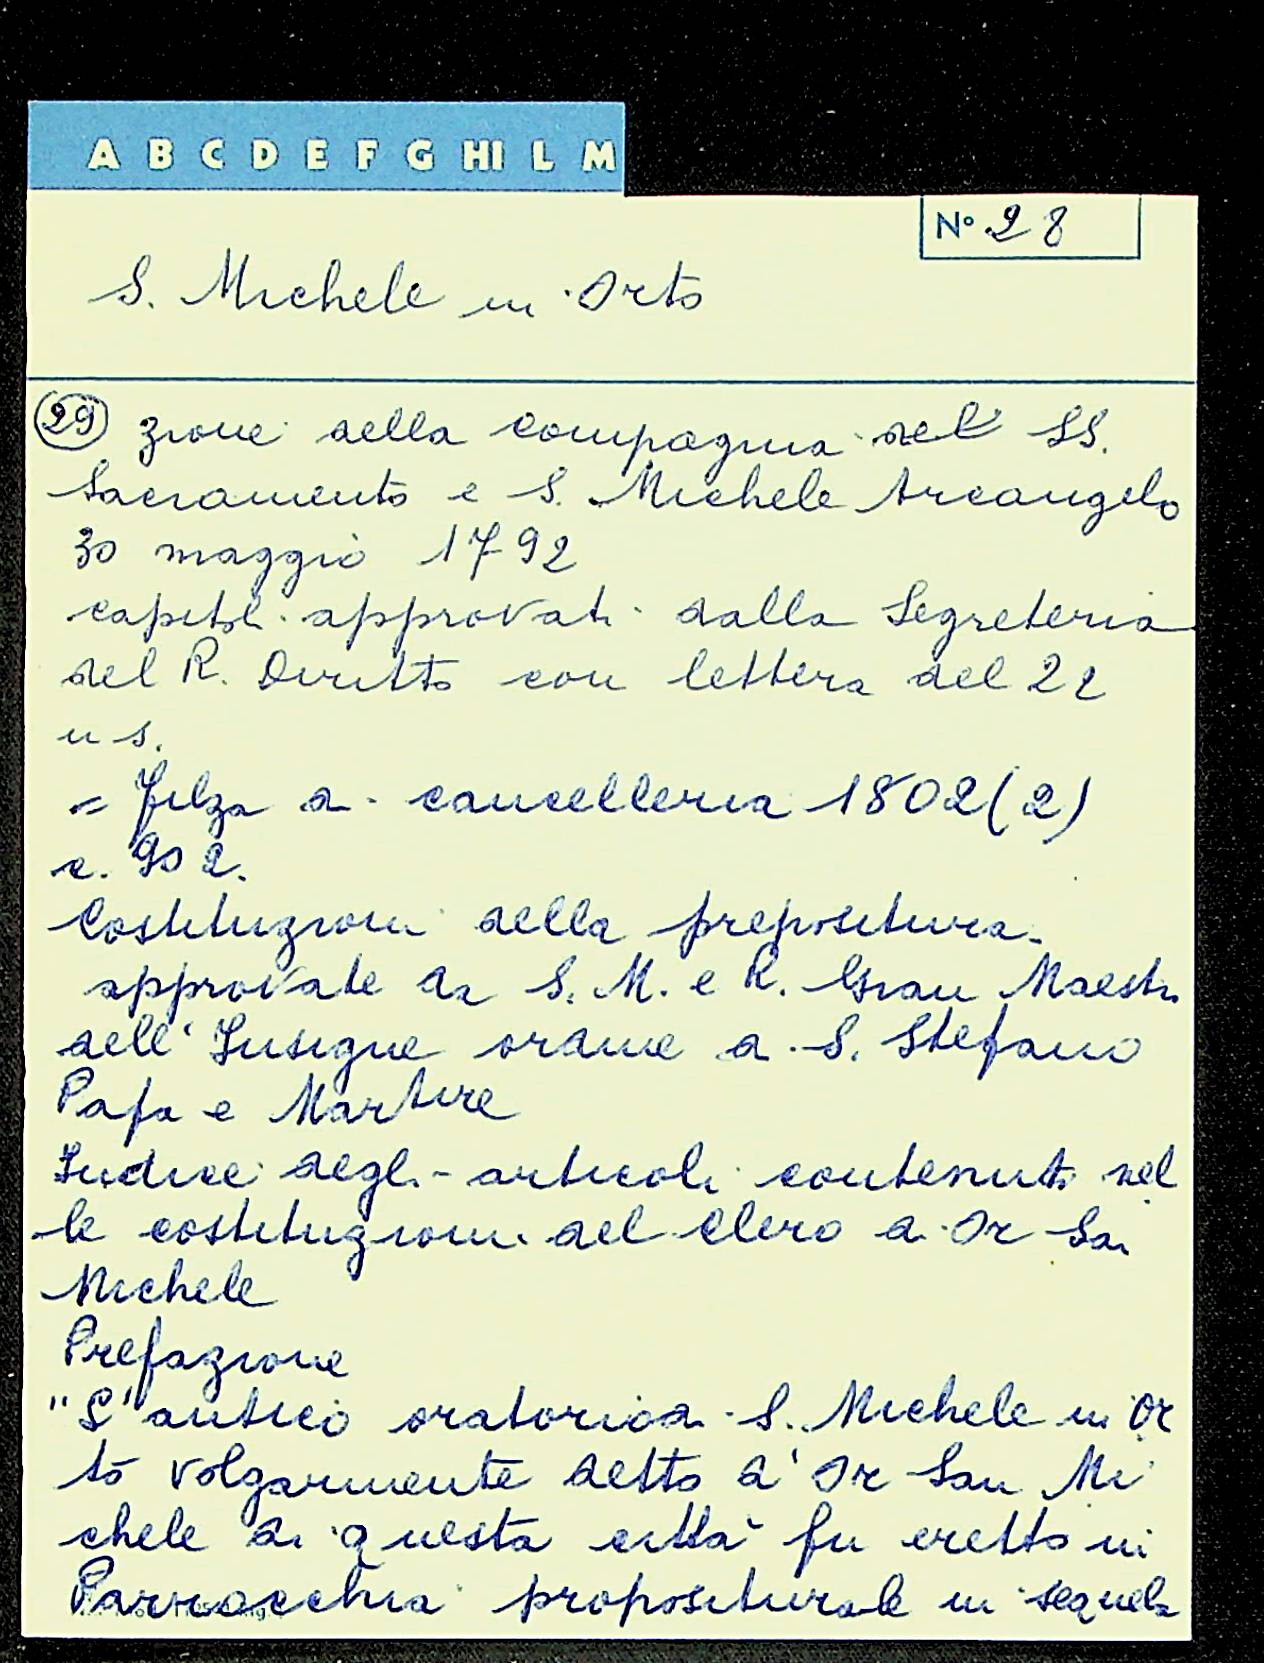 A B C D E F G HI L M
N° 28
S. Michele in Orto
29 zione della compagnia del SS.
Sacramento e S. Michele Arcangelo
30 maggio 1792
capitoli approvati dalla Segreteria
del R. Diritto con lettera del 22
u s.
= filza di cancelleria 1802 (2)
c. 902.
Costituzioni della prepositura
approvate da S. M. e R. Gran Maestro
dell'Insigne ordine di S. Stefano
Papa e Martire
Indice degli articoli contenuti nel
le costituzioni del clero di Or San
Michele
Prefazione
"L'antico oratorio di S. Michele in Or
to volgarmente detto d'Or San Mi
chele di questa città fu eretto in
Parrocchia propositurale in sequela